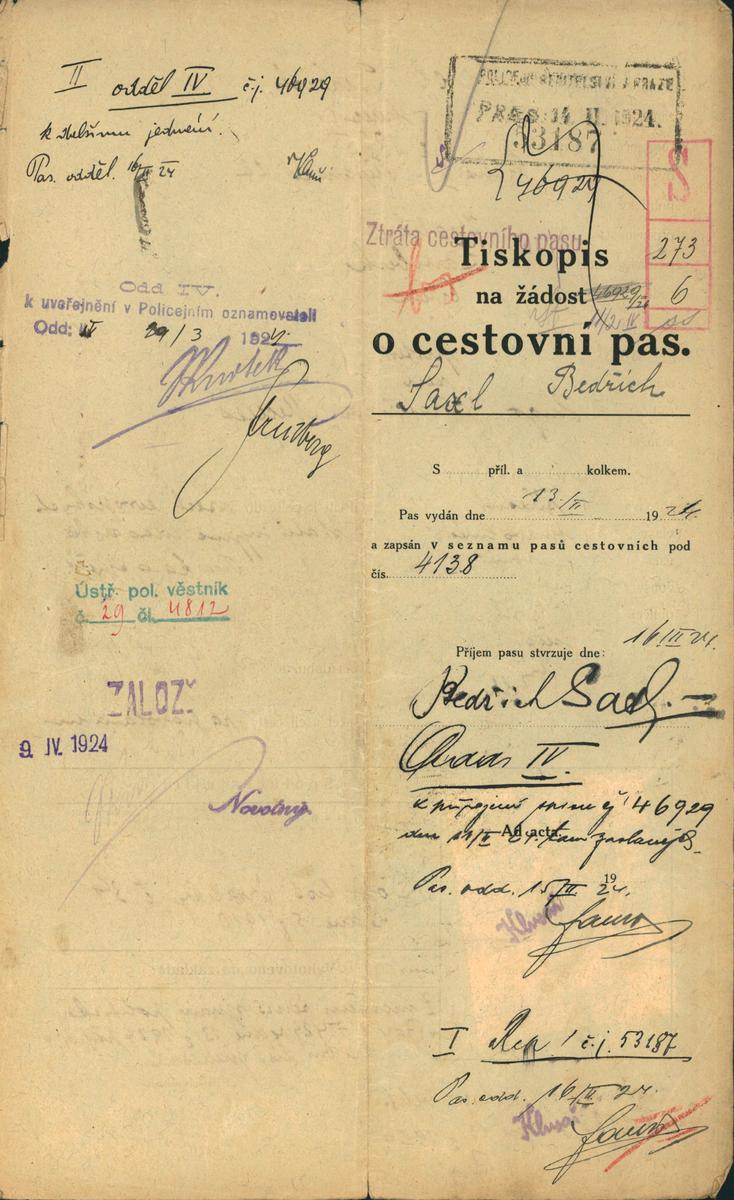 II odděl IV č.j. 46929
k dalšímu jednání.
Pas. odděl. 16/II 24
Odd IV.
k uveřejnění v Policejním oznamovateli
Odd: 29/3 1924
Ústř. pol. věstník
č. 29 čl. 4812
ZALOŽ
9. IV. 1924
Novotný
POLICEJNÍ ŘEDITELSTVÍ V PRAZE
PRAES. 14. II. 1924.
53187
46929
Ztráta cestovního pasu
273
6
Tiskopis
na žádost
46929/24
11/2 IV
o cestovní pas.
Saxl Bedřich
S příl. a kolkem.
Pas vydán dne 13/II 1924.
a zapsán v seznamu pasů cestovních pod
čís. 4138
Příjem pasu stvrzuje dne: 16 II 24.
Bedřich Saxl.
IV.
k připojení spisu čj 46929
dne 11/II 24. tam zaslaný
Ad acta
Pas. odd. 15/II 1924.
Klusá
I č.j. 53187
Pas. odd. 16/II 24.
Klusá